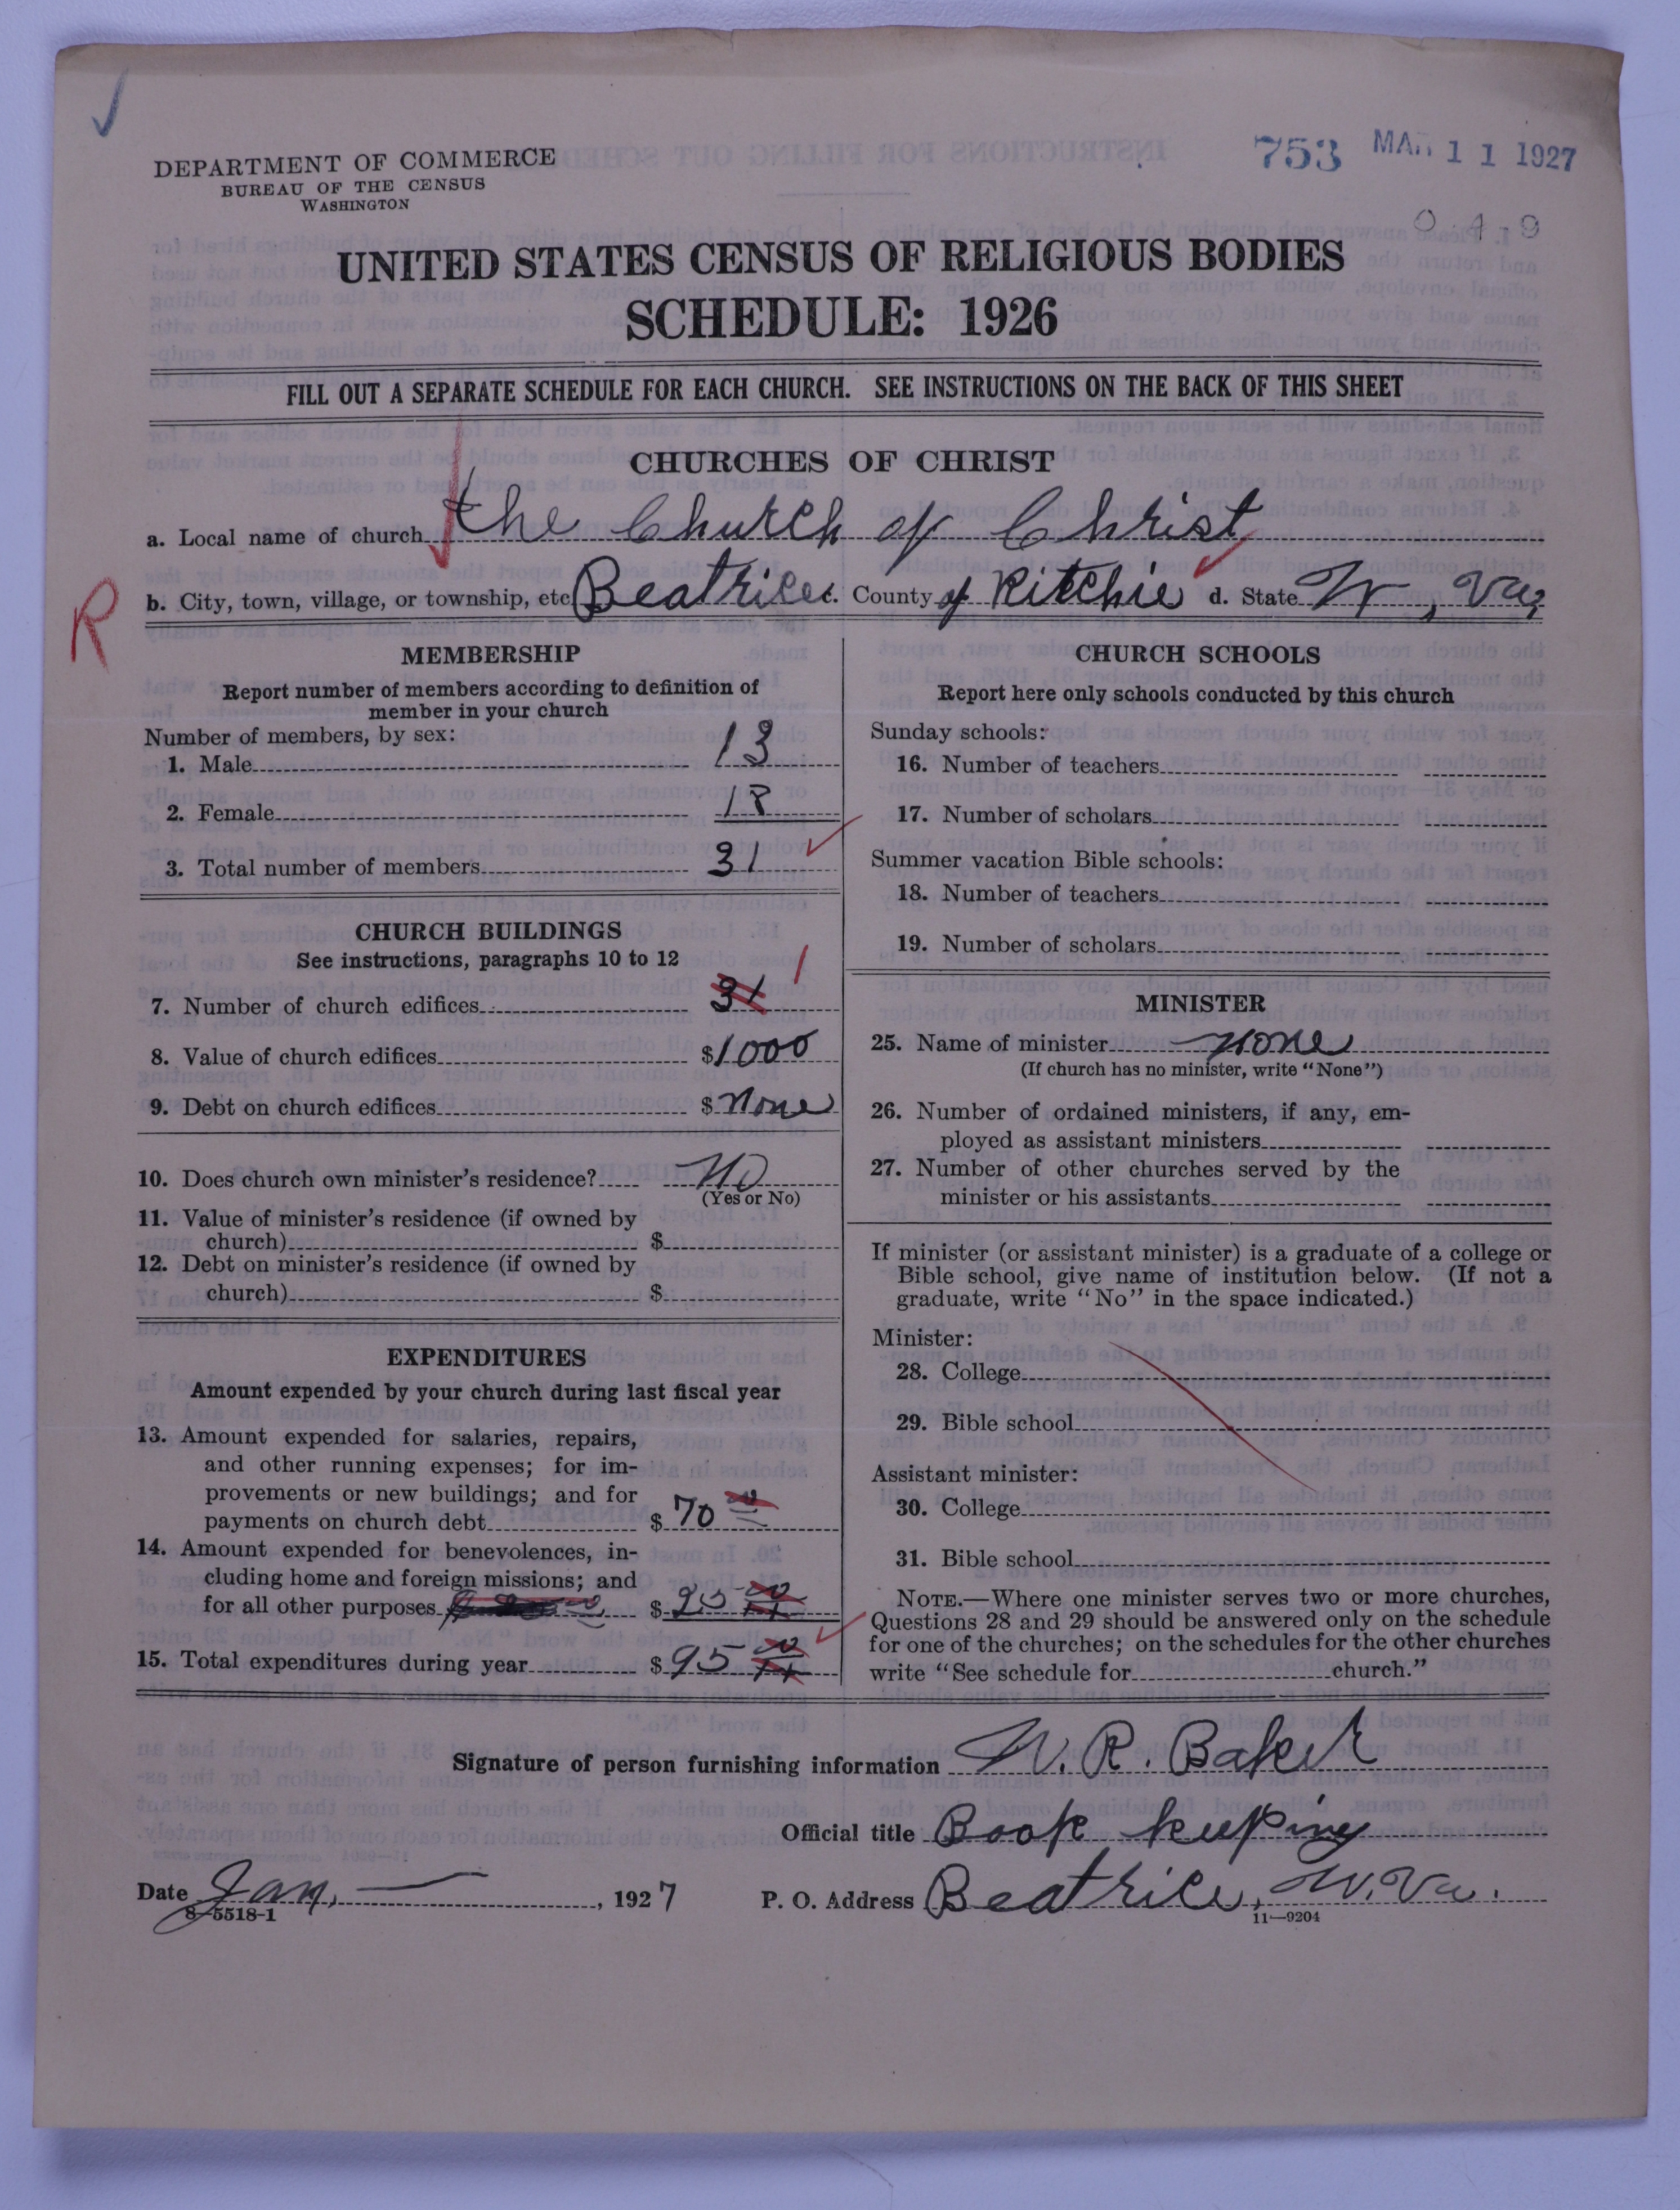 DEPARTMENT OF COMMERCE
BUREAU OF THE CENSUS
WASHINGTON
753 MAR 11 1927
UNITED STATES CENSUS OF RELIGIOUS BODIES
SCHEDULE: 1926
FILL OUT A SEPARATE SCHEDULE FOR EACH CHURCH. SEE INSTRUCTIONS ON THE BACK OF THIS SHEET
CHURCHES OF CHRIST
a. Local name of church the Church of Christ
R
b. City, town, village, or township, etc. Beatrice c. County of Ritchie d. State W, Va,
MEMBERSHIP
Report number of members according to definition of
member in your church
Number of members, by sex:
1. Male 13
2. Female 18
3. Total number of members 31
CHURCH BUILDINGS
See instructions, paragraphs 10 to 12
7. Number of church edifices 31 1
8. Value of church edifices $1000
9. Debt on church edifices $ none
10. Does church own minister's residence? no
(Yes or No)
11. Value of minister's residence (if owned by
church) $
12. Debt on minister's residence (if owned by
church) $
EXPENDITURES
Amount expended by your church during last fiscal year
13. Amount expended for salaries, repairs,
and other running expenses; for im-
provements or new buildings; and for
payments on church debt $ 70
14. Amount expended for benevolences, in-
cluding home and foreign missions; and
for all other purposes $ 25
15. Total expenditures during year $ 95
CHURCH SCHOOLS
Report here only schools conducted by this church
Sunday schools:
16. Number of teachers
17. Number of scholars
Summer vacation Bible schools:
18. Number of teachers
19. Number of scholars
MINISTER
25. Name of minister none
(If church has no minister, write "None")
26. Number of ordained ministers, if any, em-
ployed as assistant ministers
27. Number of other churches served by the
minister or his assistants
If minister (or assistant minister) is a graduate of a college or
Bible school, give name of institution below. (If not a
graduate, write "No" in the space indicated.)
Minister:
28. College
29. Bible school
Assistant minister:
30. College
31. Bible school
NOTE.—Where one minister serves two or more churches,
Questions 28 and 29 should be answered only on the schedule
for one of the churches; on the schedules for the other churches
write "See schedule for church."
Signature of person furnishing information W. R. Baker
Official title Book keeping
Date Jan, , 1927 P. O. Address Beatrice, W. Va.
8-5518-1
11—9204